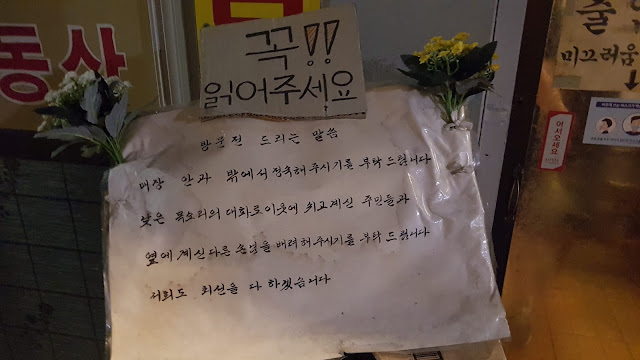 동산
꼭!!
읽어주세요
방문전 드리는 말씀
매장 안과 밖에서 정숙해 주시기를 부탁 드립니다
낮은 목소리의 대화로 이웃에 쉬고계신 주민들과
옆에 계신 다른 손님을 배려해 주시기를 부탁 드립니다
저희도 최선을 다 하겠습니다
줄
미끄러움
어서오세요